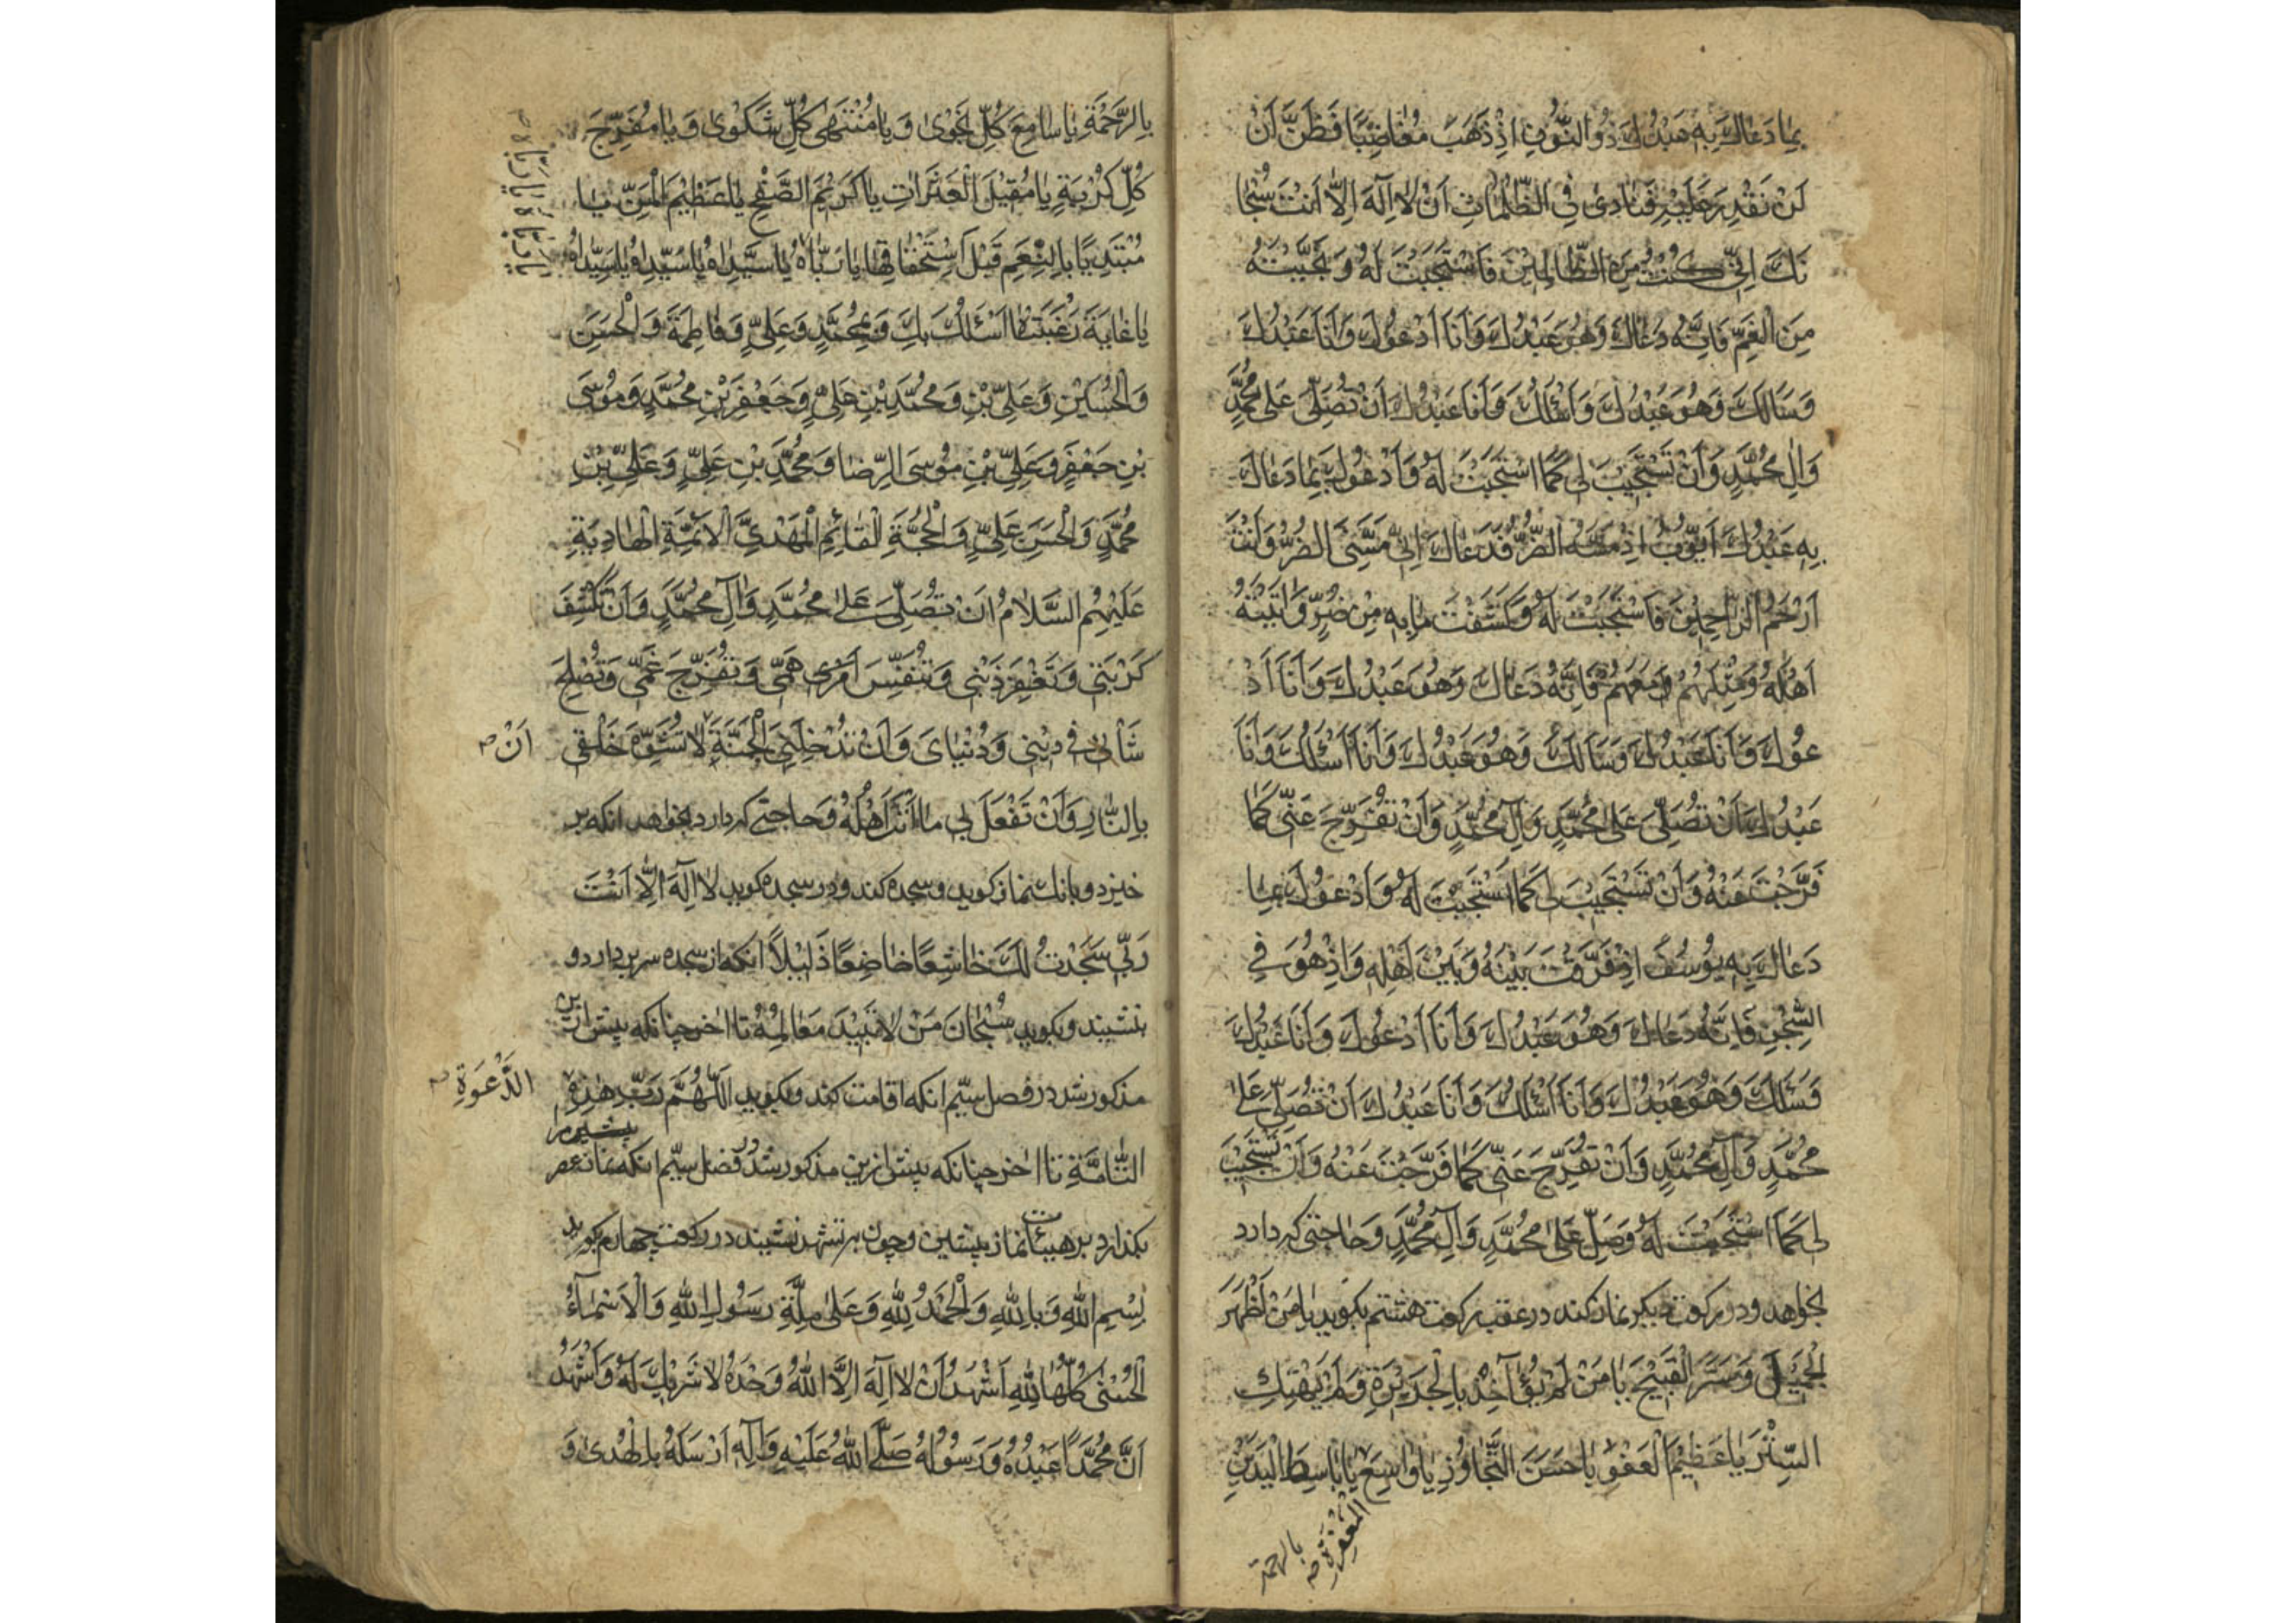 بِمَا دَعَاكَ بِهِ عَبْدُكَ ذُو النُّونِ اِذْ ذَهَبَ مُغَاضِبًا فَظَنَّ اَنْ
لَنْ نَقْدِرَ عَلَيْهِ فَنَادٰى فِي الظُّلُمَاتِ اَنْ لَا اِلٰهَ اِلَّا اَنْتَ سُبْحَا
نَكَ اِنِّي كُنْتُ مِنَ الظَّالِمِيْنَ فَاسْتَجَبْتَ لَهُ وَنَجَّيْتَهُ
مِنَ الْغَمِّ فَاِنَّهُ دَعَاكَ وَهُوَ عَبْدُكَ وَاَنَا اَدْعُوكَ وَاَنَا عَبْدُكَ
وَسَاَلَكَ وَهُوَ عَبْدُكَ وَاَسْئَلُكَ وَاَنَا عَبْدُكَ اَنْ تُصَلِّيَ عَلٰى مُحَمَّدٍ
وَاٰلِ مُحَمَّدٍ وَاَنْ تَسْتَجِيْبَ لِي كَمَا اسْتَجَبْتَ لَهُ وَاَدْعُوكَ بِمَا دَعَاكَ
بِهِ عَبْدُكَ اَيُّوبُ اِذْ مَسَّهُ الضُّرُّ فَدَعَاكَ اِنِّي مَسَّنِيَ الضُّرُّ وَاَنْتَ
اَرْحَمُ الرَّاحِمِيْنَ فَاسْتَجَبْتَ لَهُ وَكَشَفْتَ مَا بِهِ مِنْ ضُرٍّ وَاٰتَيْتَهُ
اَهْلَهُ وَمِثْلَهُمْ مَعَهُمْ فَاِنَّهُ دَعَاكَ وَهُوَ عَبْدُكَ وَاَنَا اَدْ
عُوكَ وَاَنَا عَبْدُكَ وَسَاَلَكَ وَهُوَ عَبْدُكَ وَاَنَا اَسْئَلُكَ وَاَنَا
عَبْدُكَ اَنْ تُصَلِّيَ عَلٰى مُحَمَّدٍ وَاٰلِ مُحَمَّدٍ وَاَنْ تُفَرِّجَ عَنِّي كَمَا
فَرَّجْتَ عَنْهُ وَاَنْ تَسْتَجِيْبَ لِي كَمَا اسْتَجَبْتَ لَهُ وَاَدْعُوكَ بِمَا
دَعَاكَ بِهِ يُوسُفُ اِذْ فَرَّقْتَ بَيْنَهُ وَبَيْنَ اَهْلِهِ وَاِذْ هُوَ فِي
السِّجْنِ فَاِنَّهُ دَعَاكَ وَهُوَ عَبْدُكَ وَاَنَا اَدْعُوكَ وَاَنَا عَبْدُكَ
وَسَئَلَكَ وَهُوَ عَبْدُكَ وَاَنَا اَسْئَلُكَ وَاَنَا عَبْدُكَ اَنْ تُصَلِّيَ عَلٰى
مُحَمَّدٍ وَاٰلِ مُحَمَّدٍ وَاَنْ تُفَرِّجَ عَنِّي كَمَا فَرَّجْتَ عَنْهُ وَاَنْ تَسْتَجِيْبَ
لِي كَمَا اسْتَجَبْتَ لَهُ وَصَلِّ عَلٰى مُحَمَّدٍ وَاٰلِ مُحَمَّدٍ وَحَاجَتِي كه دارد
بخواهد و دو ركعت ديكر نماز كند در عقب ركعت هشتم بكويد يَا مَنْ اَظْهَرَ
الْجَمِيْلَ وَسَتَرَ الْقَبِيْحَ يَا مَنْ لَمْ يُؤَاخِذْ بِالْجَرِيْرَةِ وَلَمْ يَهْتِكِ
السِّتْرَ يَا عَظِيْمَ الْعَفْوِ يَا حَسَنَ التَّجَاوُزِ يَا وَاسِعَ يَا بَاسِطَ الْيَدَيْنِ
الْمَغْفِرَةِ صح
بالرحمة
بِالرَّحْمَةِ يَا سَامِعَ كُلِّ نَجْوٰى وَيَا مُنْتَهٰى كُلِّ شَكْوٰى وَيَا مُفَرِّجَ
كُلِّ كُرْبَةٍ يَا مُقِيْلَ الْعَثَرَاتِ يَا كَرِيْمَ الصَّفْحِ يَا عَظِيْمَ الْمَنِّ يَا
مُبْتَدِيًا بِالنِّعَمِ قَبْلَ اسْتِحْقَاقِهَا يَا رَبَّاهُ يَا سَيِّدَاهُ يَا سَيِّدَاهُ يَا سَيِّدَاهُ
يَا رَبَّاهُ يَا رَبَّاهُ صح
يَا غَايَةَ رَغْبَتَاهُ اَسْئَلُكَ بِكَ وَبِمُحَمَّدٍ وَعَلِيٍّ وَفَاطِمَةَ وَالْحَسَنِ
وَالْحُسَيْنِ وَعَلِيِّ بْنِ وَمُحَمَّدِ بْنِ عَلِيٍّ وَجَعْفَرِ بْنِ مُحَمَّدٍ وَمُوسَى
بْنِ جَعْفَرٍ وَعَلِيِّ بْنِ مُوسَى الرِّضَا وَمُحَمَّدِ بْنِ عَلِيٍّ وَعَلِيِّ بْنِ
مُحَمَّدٍ وَالْحَسَنِ عَلِيٍّ وَالْحُجَّةِ الْقَائِمِ الْمَهْدِيِّ الْاَئِمَّةِ الْهَادِيَةِ
عَلَيْهِمُ السَّلَامُ اَنْ تُصَلِّيَ عَلٰى مُحَمَّدٍ وَاٰلِ مُحَمَّدٍ وَاَنْ تَكْشِفَ
كَرْبَتِي وَتَغْفِرَ ذَنْبِي وَتُنَفِّسَ هَمِّي وَتُفَرِّجَ غَمِّي وَتُصْلِحَ
شَأْنِي فِي دِيْنِي وَدُنْيَايَ وَاَنْ تُدْخِلَنِي الْجَنَّةَ لَا تُشَوِّهَ خَلْقِي
اَنْ صح
بِالنَّارِ وَاَنْ تَفْعَلَ بِي مَا اَنْتَ اَهْلُهُ وَحاجتى كه دارد بخواهد انكه بر
خيزد و بانك نماز كويد و سجده كند و در سجده كويد لَا اِلٰهَ اِلَّا اَنْتَ
رَبِّي سَجَدْتُ لَكَ خَاشِعًا خَاضِعًا ذَلِيْلًا انكه از سجده سر بردارد و
بنشيند و بكويد سُبْحَانَ مَنْ لَا تَبِيْدُ مَعَالِمُهُ تا اخر چنانكه پيش ازين
مذكور شد در فصل سيّم انكه اقامت كند و بكويد اَللّٰهُمَّ رَبَّ هٰذِهِ
الدَّعْوَةِ صح
التَّامَّةِ تا اخر چنانكه پيش ازين مذكور شد در فصل سيّم انكه نماز عصر
بكذارد بر هيئات نماز پيشين و چون بر تشهد نشيند در ركعت چهارم بكويد
بِسْمِ اللّٰهِ وَبِاللّٰهِ وَالْحَمْدُ لِلّٰهِ وَعَلٰى مِلَّةِ رَسُولِ اللّٰهِ وَالْاَسْمَاءُ
الْحُسْنٰى كُلُّهَا لِلّٰهِ اَشْهَدُ اَنْ لَا اِلٰهَ اِلَّا اللّٰهُ وَحْدَهُ لَا شَرِيْكَ لَهُ وَاَشْهَدُ
اَنَّ مُحَمَّدًا عَبْدُهُ وَرَسُولُهُ صَلَّى اللّٰهُ عَلَيْهِ وَاٰلِهِ اَرْسَلَهُ بِالْهُدٰى وَ